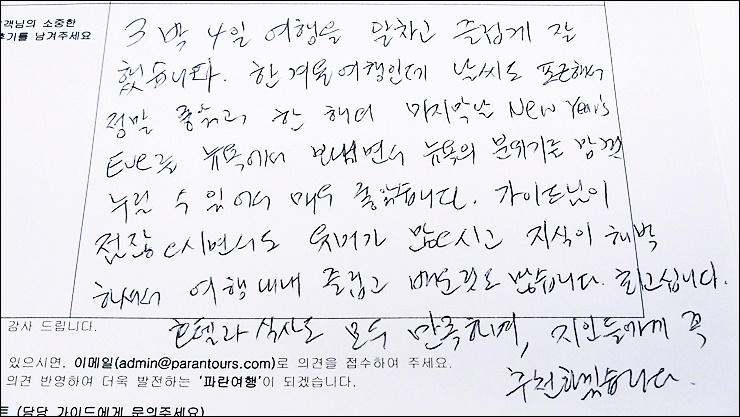 객님의 소중한
후기를 남겨주세요
3박 4일 여행을 알차고 즐겁게 잘
했습니다. 한겨울여행인데 날씨도 포근해서
정말 좋았고, 한 해의 마지막날 New Year's
Eve를 뉴욕에서 보내면서 뉴욕의 분위기를 맘껏
누릴 수 있어서 매우 좋았습니다. 가이드님이
점잖으시면서도 유머가 많으시고 지식이 해박
하셔서 여행내내 즐겁고 배운것도 많습니다. 최고십니다.
호텔과 식사도 모두 만족하며, 지인들에게 꼭
추천하겠습니다.
감사 드립니다.
있으시면, 이메일(admin@parantours.com)로 의견을 접수하여 주세요.
의견 반영하여 더욱 발전하는 '파란여행'이 되겠습니다.
트 (담당 가이드에게 문의주세요)